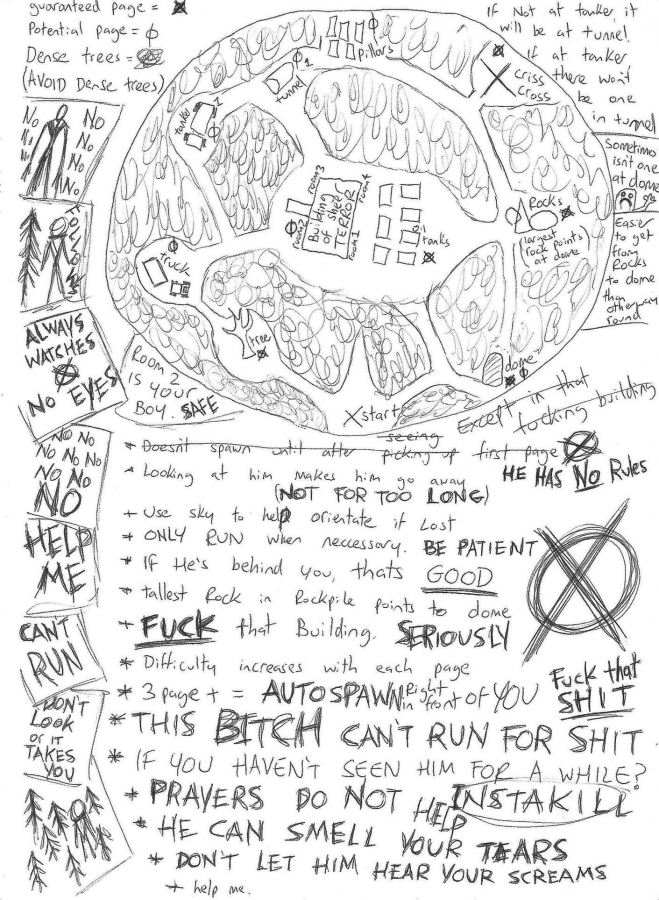 guaranteed page =
Potential page = φ
Dense trees =
(AVOID Dense trees)
If Not at tanker it
will be at tunnel.
If at tanker
there won't
be one
in tunnel
criss
cross
pillars
φ1
tunnel
tanker
φ1
Sometimes
isn't one
at dome
Easier
to get
from
Rocks
to dome
than
other way
round
Rocks
(largest
rock points)
at dome
room 3
room 4
room 2
room 1
Building
of shelf
TERROR
tanks
truck
tree
dome
X start
Room 2
IS YOUR
BOY. SAFE
No No
No No
No No
No No
No
FOLLOWS
ALWAYS
WATCHES
NO EYES
NO NO
NO NO NO
NO NO
NO
HELP
ME
CAN'T
RUN
DON'T
LOOK
or IT
TAKES
YOU
Except in that
fucking building
* Doesn't spawn until after seeing picking up first page
HE HAS NO Rules
- Looking at him makes him go away
(NOT FOR TOO LONG)
+ Use sky to help orientate if Lost
+ ONLY RUN when neccessary. BE PATIENT
* If He's behind you, thats GOOD
* tallest Rock in Rockpile points to dome
+ FUCK that Building. SERIOUSLY
* Difficulty increases with each page
* 3 page + = AUTOSPAWN Right in front of YOU
Fuck that
SHIT
* THIS BITCH CAN'T RUN FOR SHIT
* IF YOU HAVEN'T SEEN HIM FOR A WHILE?
INSTAKILL
* PRAYERS DO NOT HELP
* HE CAN SMELL YOUR TEARS
* DON'T LET HIM HEAR YOUR SCREAMS
+ help me.